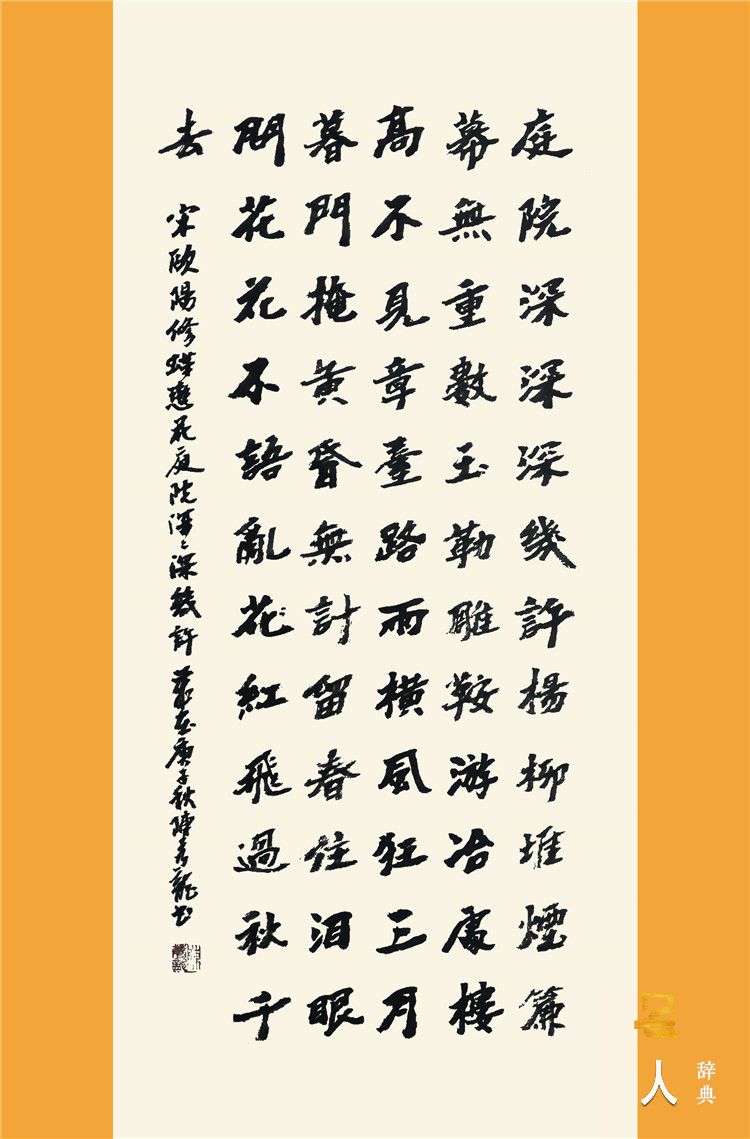 庭院深深深幾許楊柳堆煙簾
幕無重數玉勒雕鞍游冶處樓
高不見章臺路雨橫風狂三月
暮門掩黃昏無計留春住泪眼
問花花不語亂花紅飛過秋千
去
宋欧陽修蝶戀花庭院深深幾許 歲在庚子秋陳秀龍书
名人
辞典